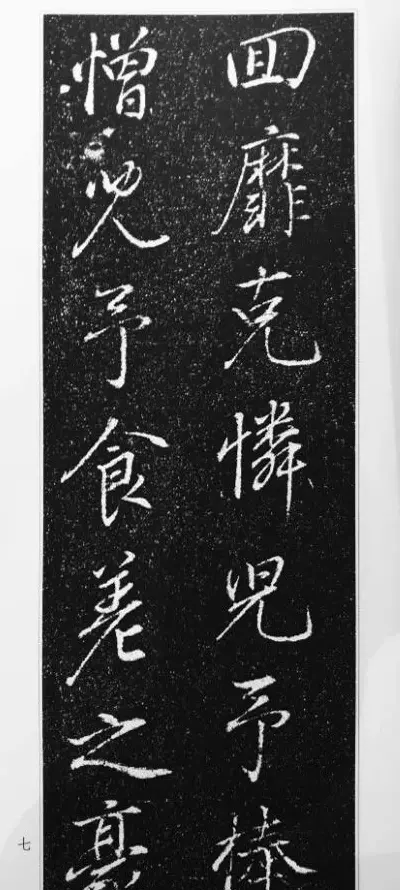 回靡克憐兒予棒
憎兒予食差之毫
七